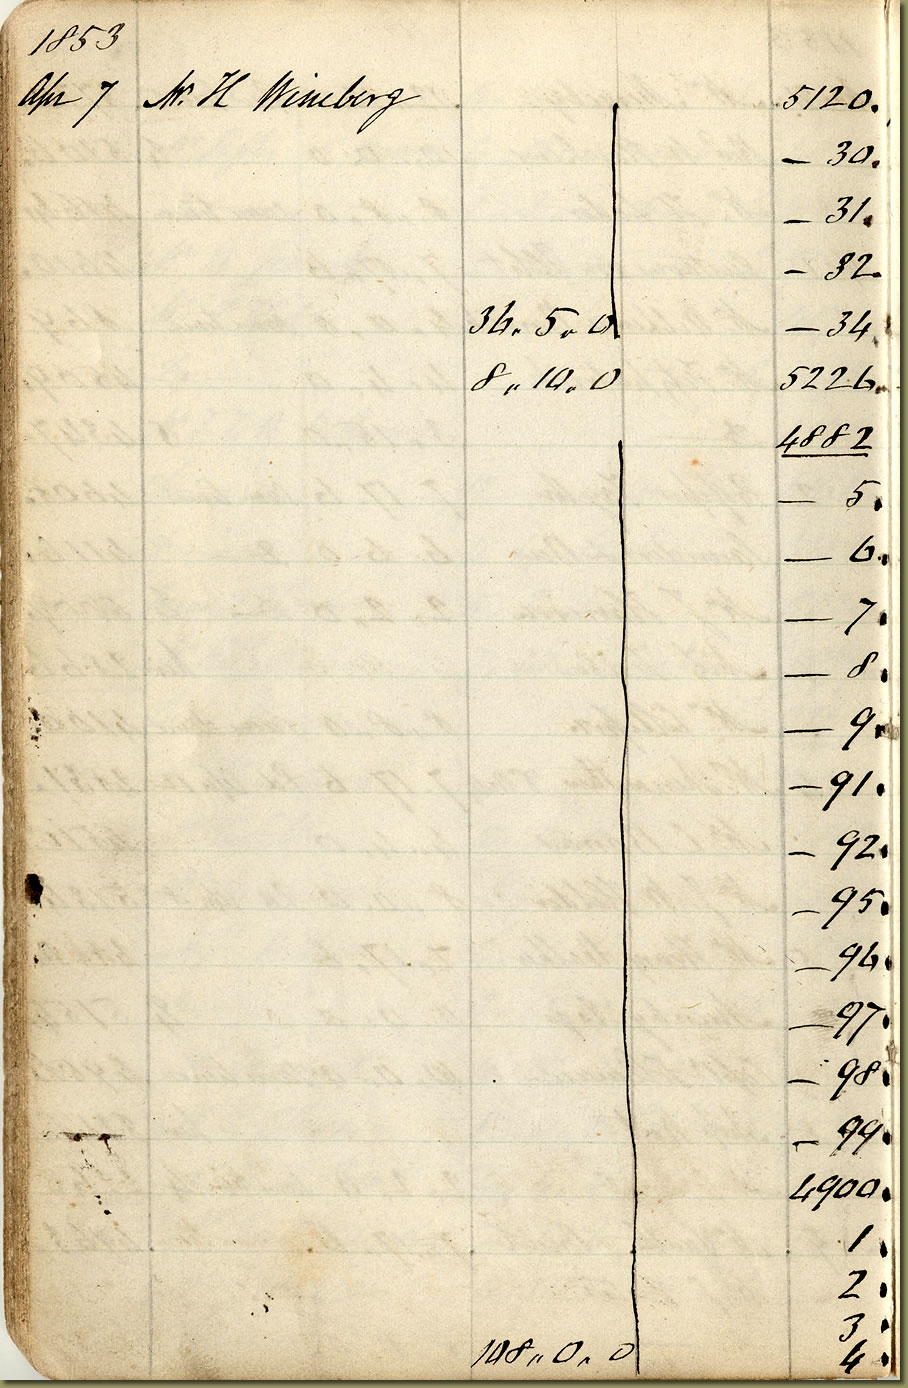 1853
Apr 7 Mr. H Wineberg 5120.
— 30.
— 31.
— 32.
36.. 5.. 0 — 34
8.. 10.. 0 5226.
4882
— 5.
— 6.
— 7.
— 8.
— 9.
— 91.
— 92.
— 95.
— 96.
— 97.
— 98.
— 99.
4900.
1.
2.
3.
108.. 0.. 0 4.